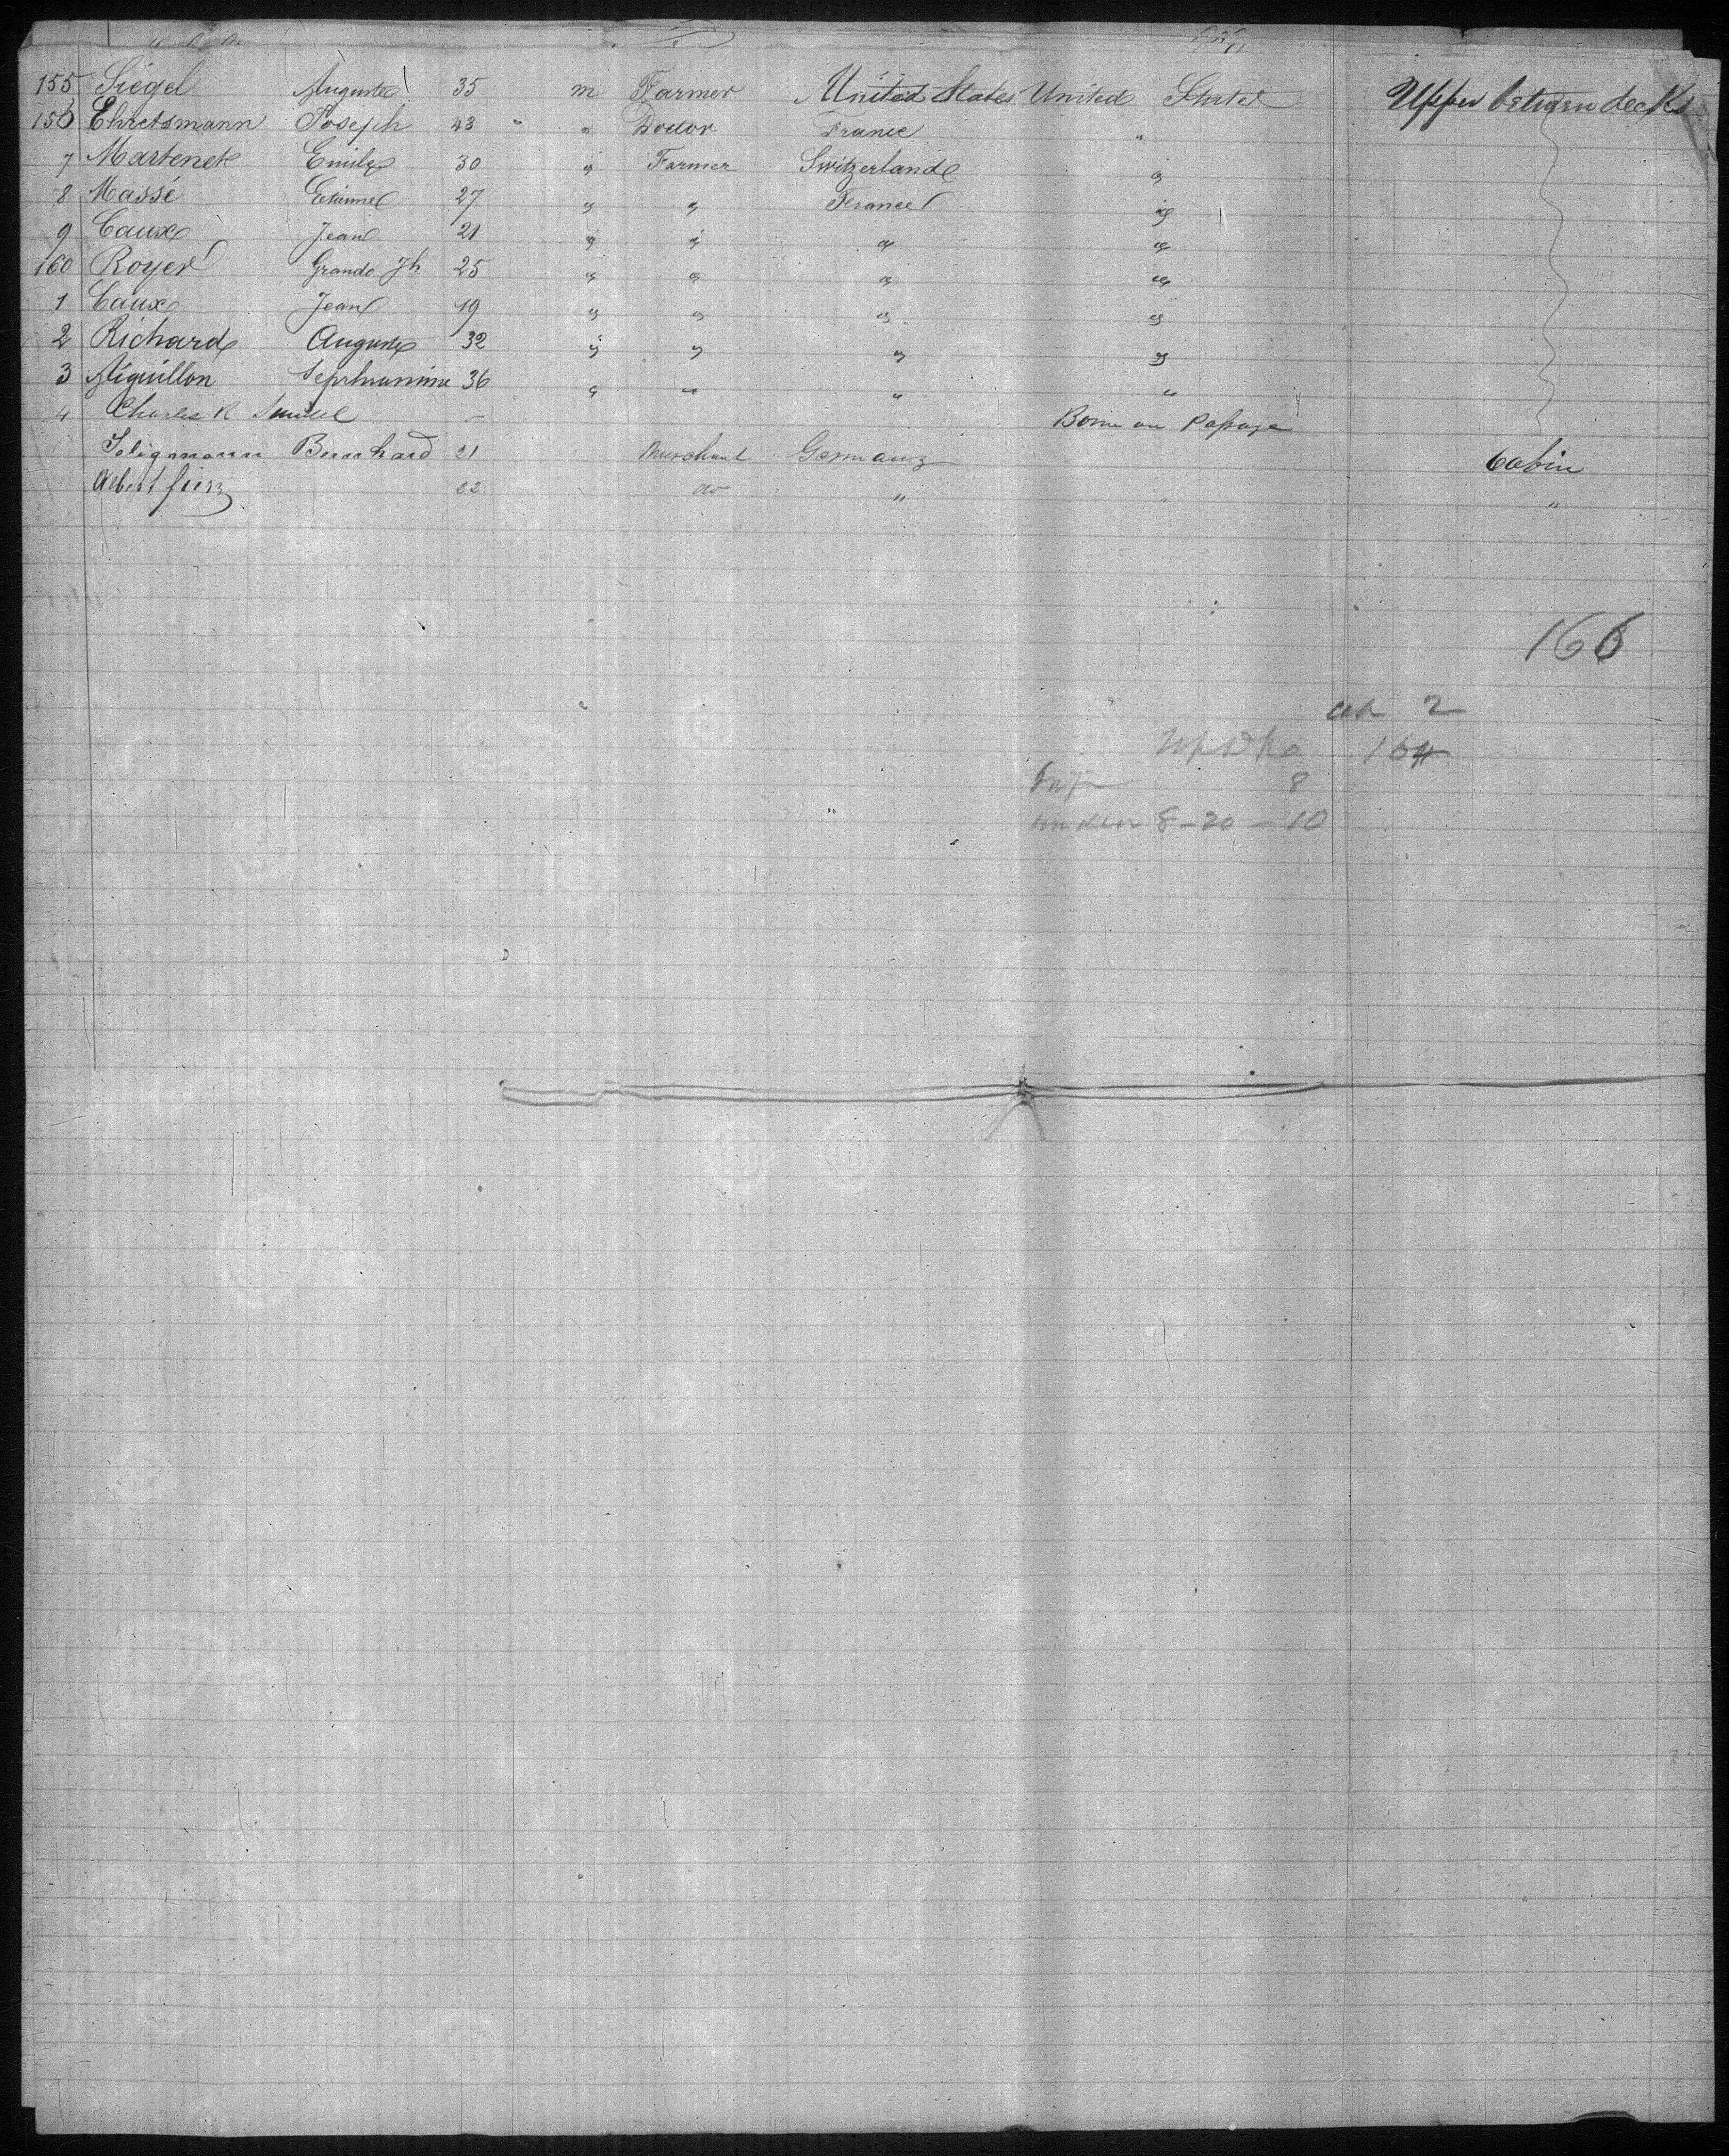 155 Siégel Auguste 35 m Farmer United States United States Upper between decks
156 Ehretsmann Joseph 43 " " Doctor France "
7 Martenet Emile 30 " Farmer Switzerland "
8 Massé Etienne 27 " " France "
9 Caux Jean 21 " " " "
160 Royer Grando Jh 25 " " " "
1 Caux Jean 19 " " " "
2 Richard Auguste 32 " " " "
3 Aiguillon 36 " " " "
4 Charles R — Born on Passage
Seligmann Bernhard 21 Merchant Germany Cabin
Albert 22 do " " "
166
cab 2
164
8
under 8-20 - 10